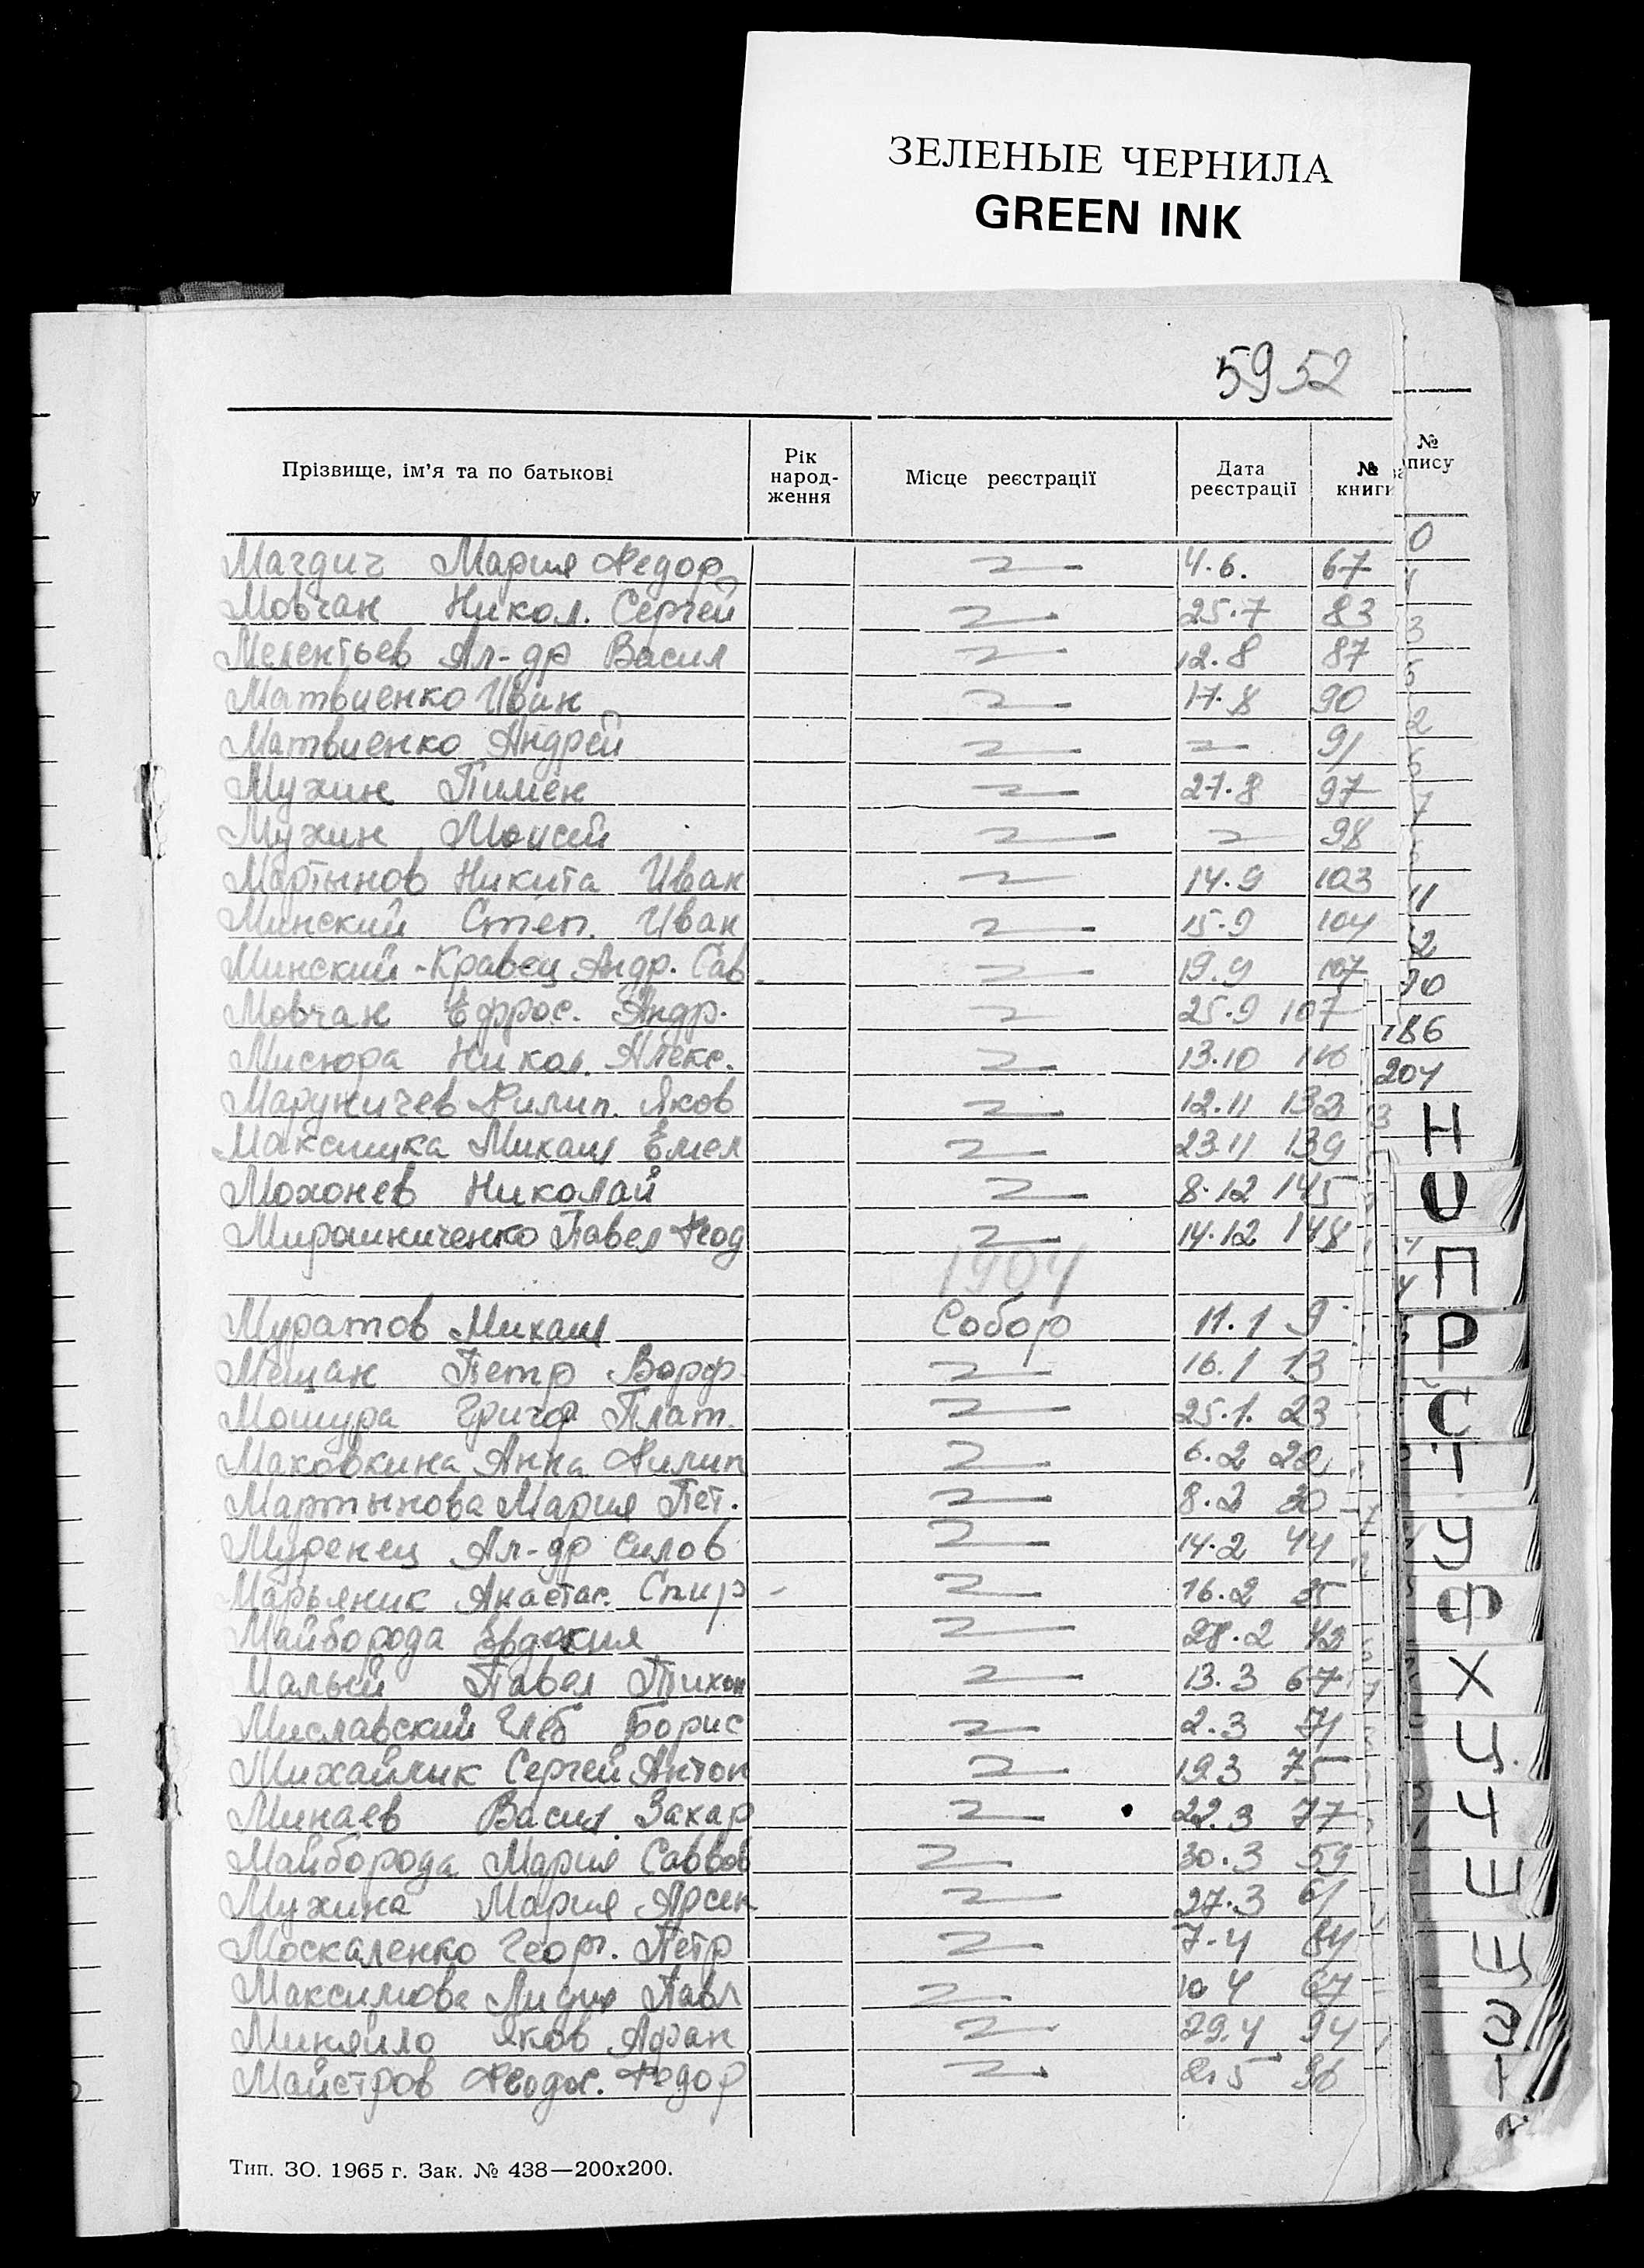 ЗЕЛЕНЫЕ ЧЕРНИЛА
GREEN INK
5952
Прізвище, ім'я та по батькові Рік народ- ження Місце реєстрації Дата реєстрації № книги № пису
Магдич Мария Федор 4.6. 67
Мовчан Никол. Сергей 25.7 83
Мелентьев Ал-др Васил 12.8 87
Матвиенко Иван 17.8 90
Матвиенко Андрей 91
Мухин Пимен 27.8 97
Мухин Моисей 98
Мартынов Никита Иван 14.9 103
Минский Степ. Иван 15.9 104
Минский-Кравец Андр. Сав. 19.9 107
Мовчан Ефрос. Андр. 25.9 107
Мисюра Никол. Алекс. 13.10 116
Маруничев Филип. Яков 12.11 132
Максимка Михаил Емел 23.11 139
Мохонев Николай 8.12 145
Мирошниченко Павел Феод 14.12 148
1904
Муратов Михаил Собор 11.1 9
Мещан Петр Варф 16.1 13
Мошура Григор Плат. 25.1. 23
Маховкина Анна Филип 6.2 28
Мартынова Мария Пет. 8.2 30
Муренец Ал-др Силов 14.2 44
Марьяник Анастас. Спир 16.2 35
Майборода Евдокия 28.2 42
Малый Павел Тихон 13.3 67
Миславский Глеб Борис 2.3 71
Михайлик Сергей Антон 19.3 75
Минаев Васил Захар 22.3 77
Майборода Мария Саввов 30.3 59
Мухина Мария Арсен 27.3 61
Москаленко Георг. Петр 7.4 84
Максимова Лидия Павл 10 4 67
Миняйло Яков Афан 29.4 94
Майстров Феодос. Федор 2.5 96
186
204
Н
О
П
Р
С
Т
У
Ф
Х
Ц
Ч
Ш
Щ
Э
Тип. ЗО. 1965 г. Зак. № 438—200х200.